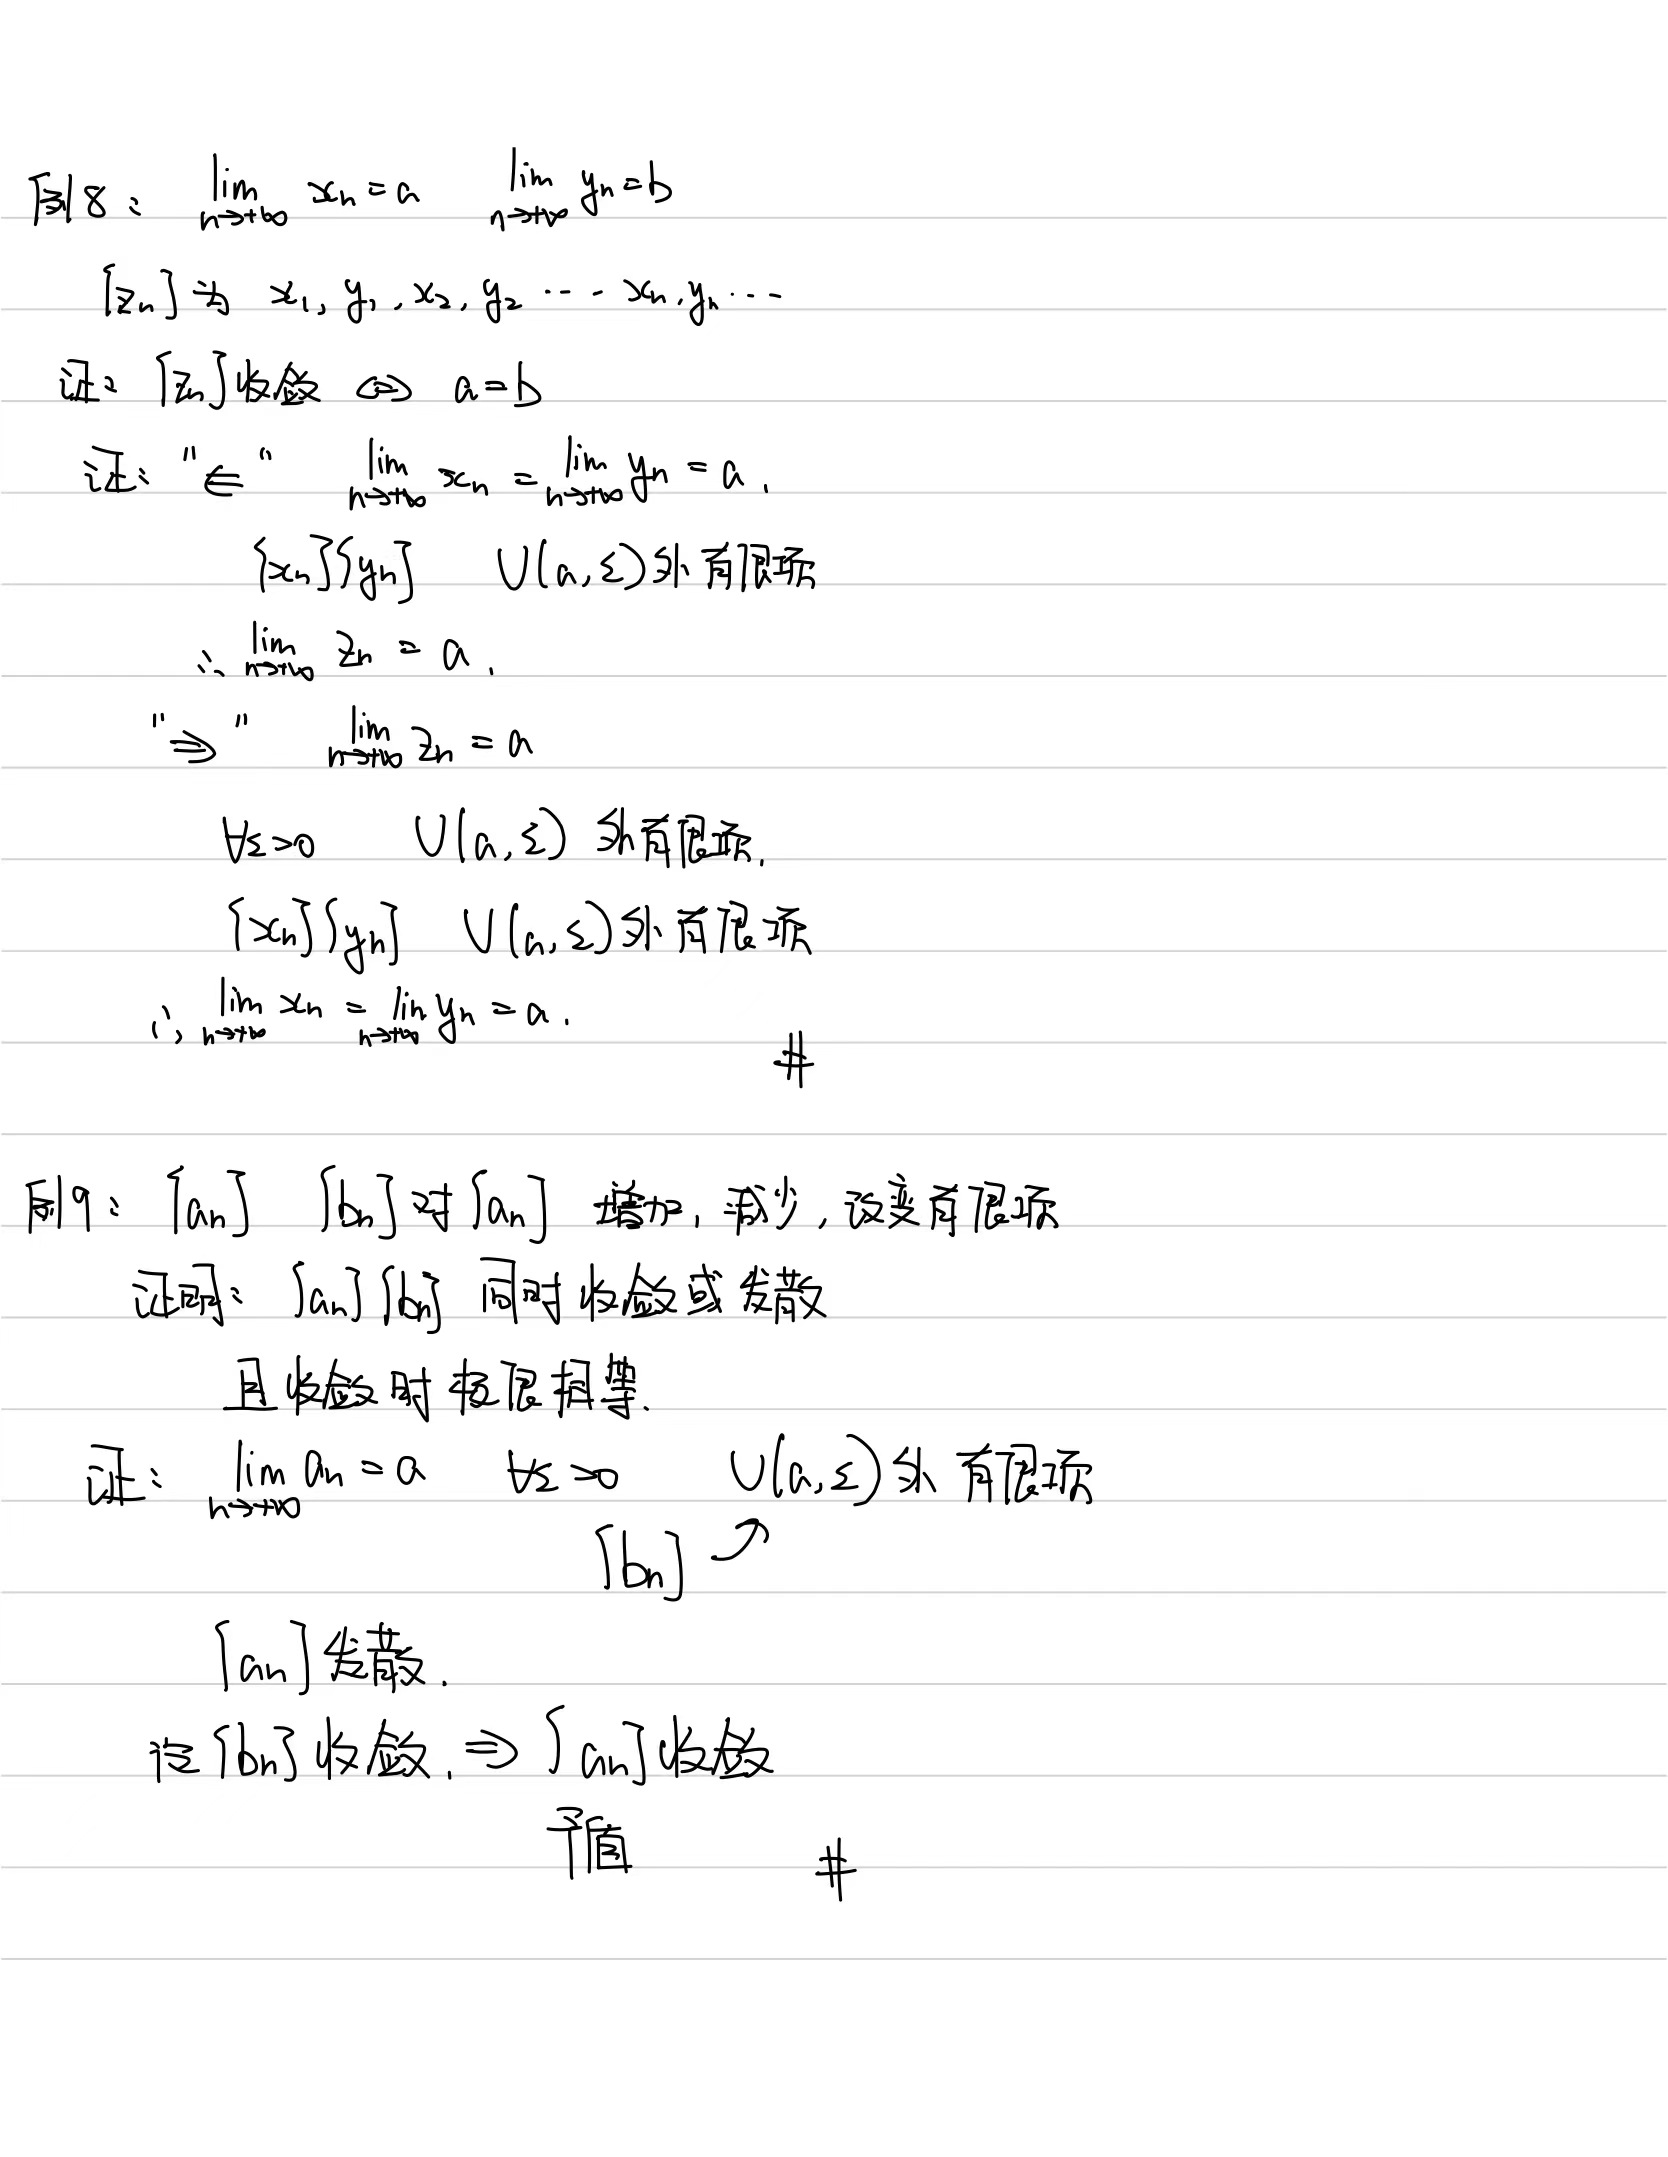 例8: lim n→+∞ xn=a lim n→+∞ yn=b
{zn}为 x1, y1, x2, y2 ··· xn, yn ···
证: {zn}收敛 ⇔ a=b
证: "⇐" lim n→+∞ xn = lim n→+∞ yn = a.
{xn}{yn} U(a,ε)外有限项
∴ lim n→+∞ zn = a.
"⇒" lim n→+∞ zn = a
∀ε>0 U(a,ε) 外有限项.
{xn}{yn} U(a,ε)外有限项
∴ lim n→+∞ xn = lim n→+∞ yn = a.
#
例9: {an} {bn}对{an} 增加, 减少, 改变有限项
证明: {an}{bn} 同时收敛或发散
且收敛时极限相等.
证: lim n→+∞ an = a ∀ε>0 U(a,ε)外有限项
{bn}
{an}发散.
设{bn}收敛. ⇒ {an}收敛
矛盾 #